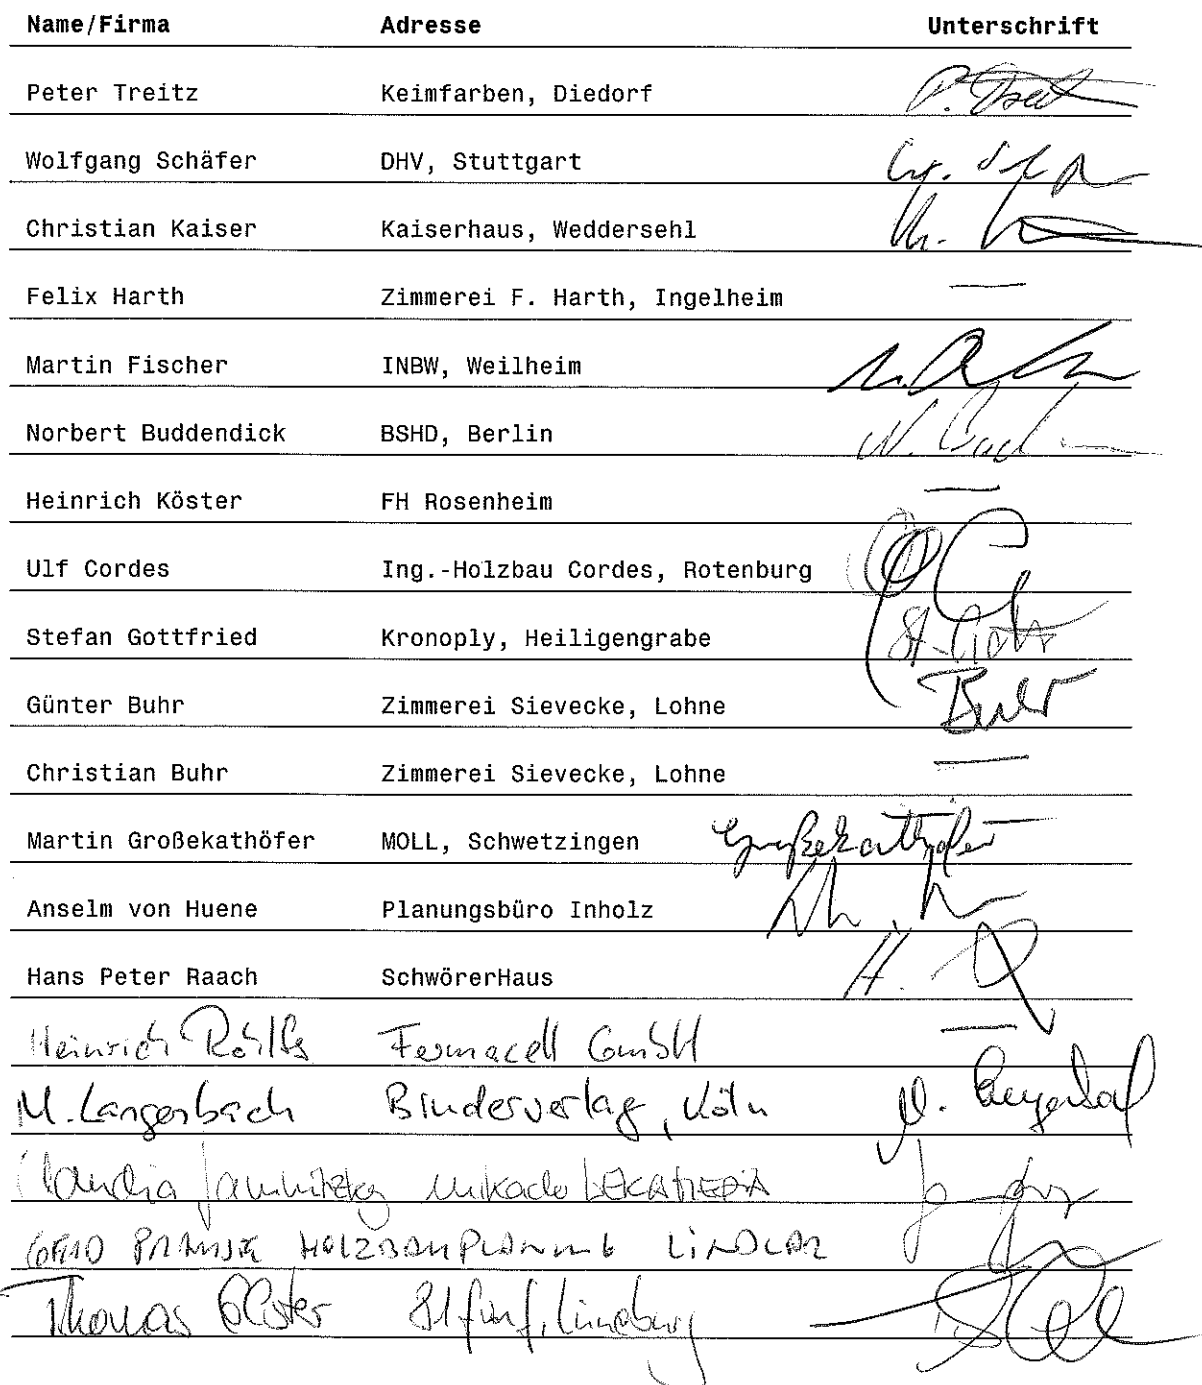 Name/Firma Adresse Unterschrift
Peter Treitz Keimfarben, Diedorf
Wolfgang Schäfer DHV, Stuttgart
Christian Kaiser Kaiserhaus, Weddersehl
Felix Harth Zimmerei F. Harth, Ingelheim —
Martin Fischer INBW, Weilheim
Norbert Buddendick BSHD, Berlin
Heinrich Köster FH Rosenheim —
Ulf Cordes Ing.-Holzbau Cordes, Rotenburg
Stefan Gottfried Kronoply, Heiligengrabe
Günter Buhr Zimmerei Sievecke, Lohne Buhr
Christian Buhr Zimmerei Sievecke, Lohne —
Martin Großekathöfer MOLL, Schwetzingen Großekathöfer
Anselm von Huene Planungsbüro Inholz
Hans Peter Raach SchwörerHaus
Heinrich Fermacell GmbH —
M. Langenbach Bruderverlag, Köln
Claudia mikado WEKA MEDIA
HOLZBAUPLANUNG LINDLAR
Thomas